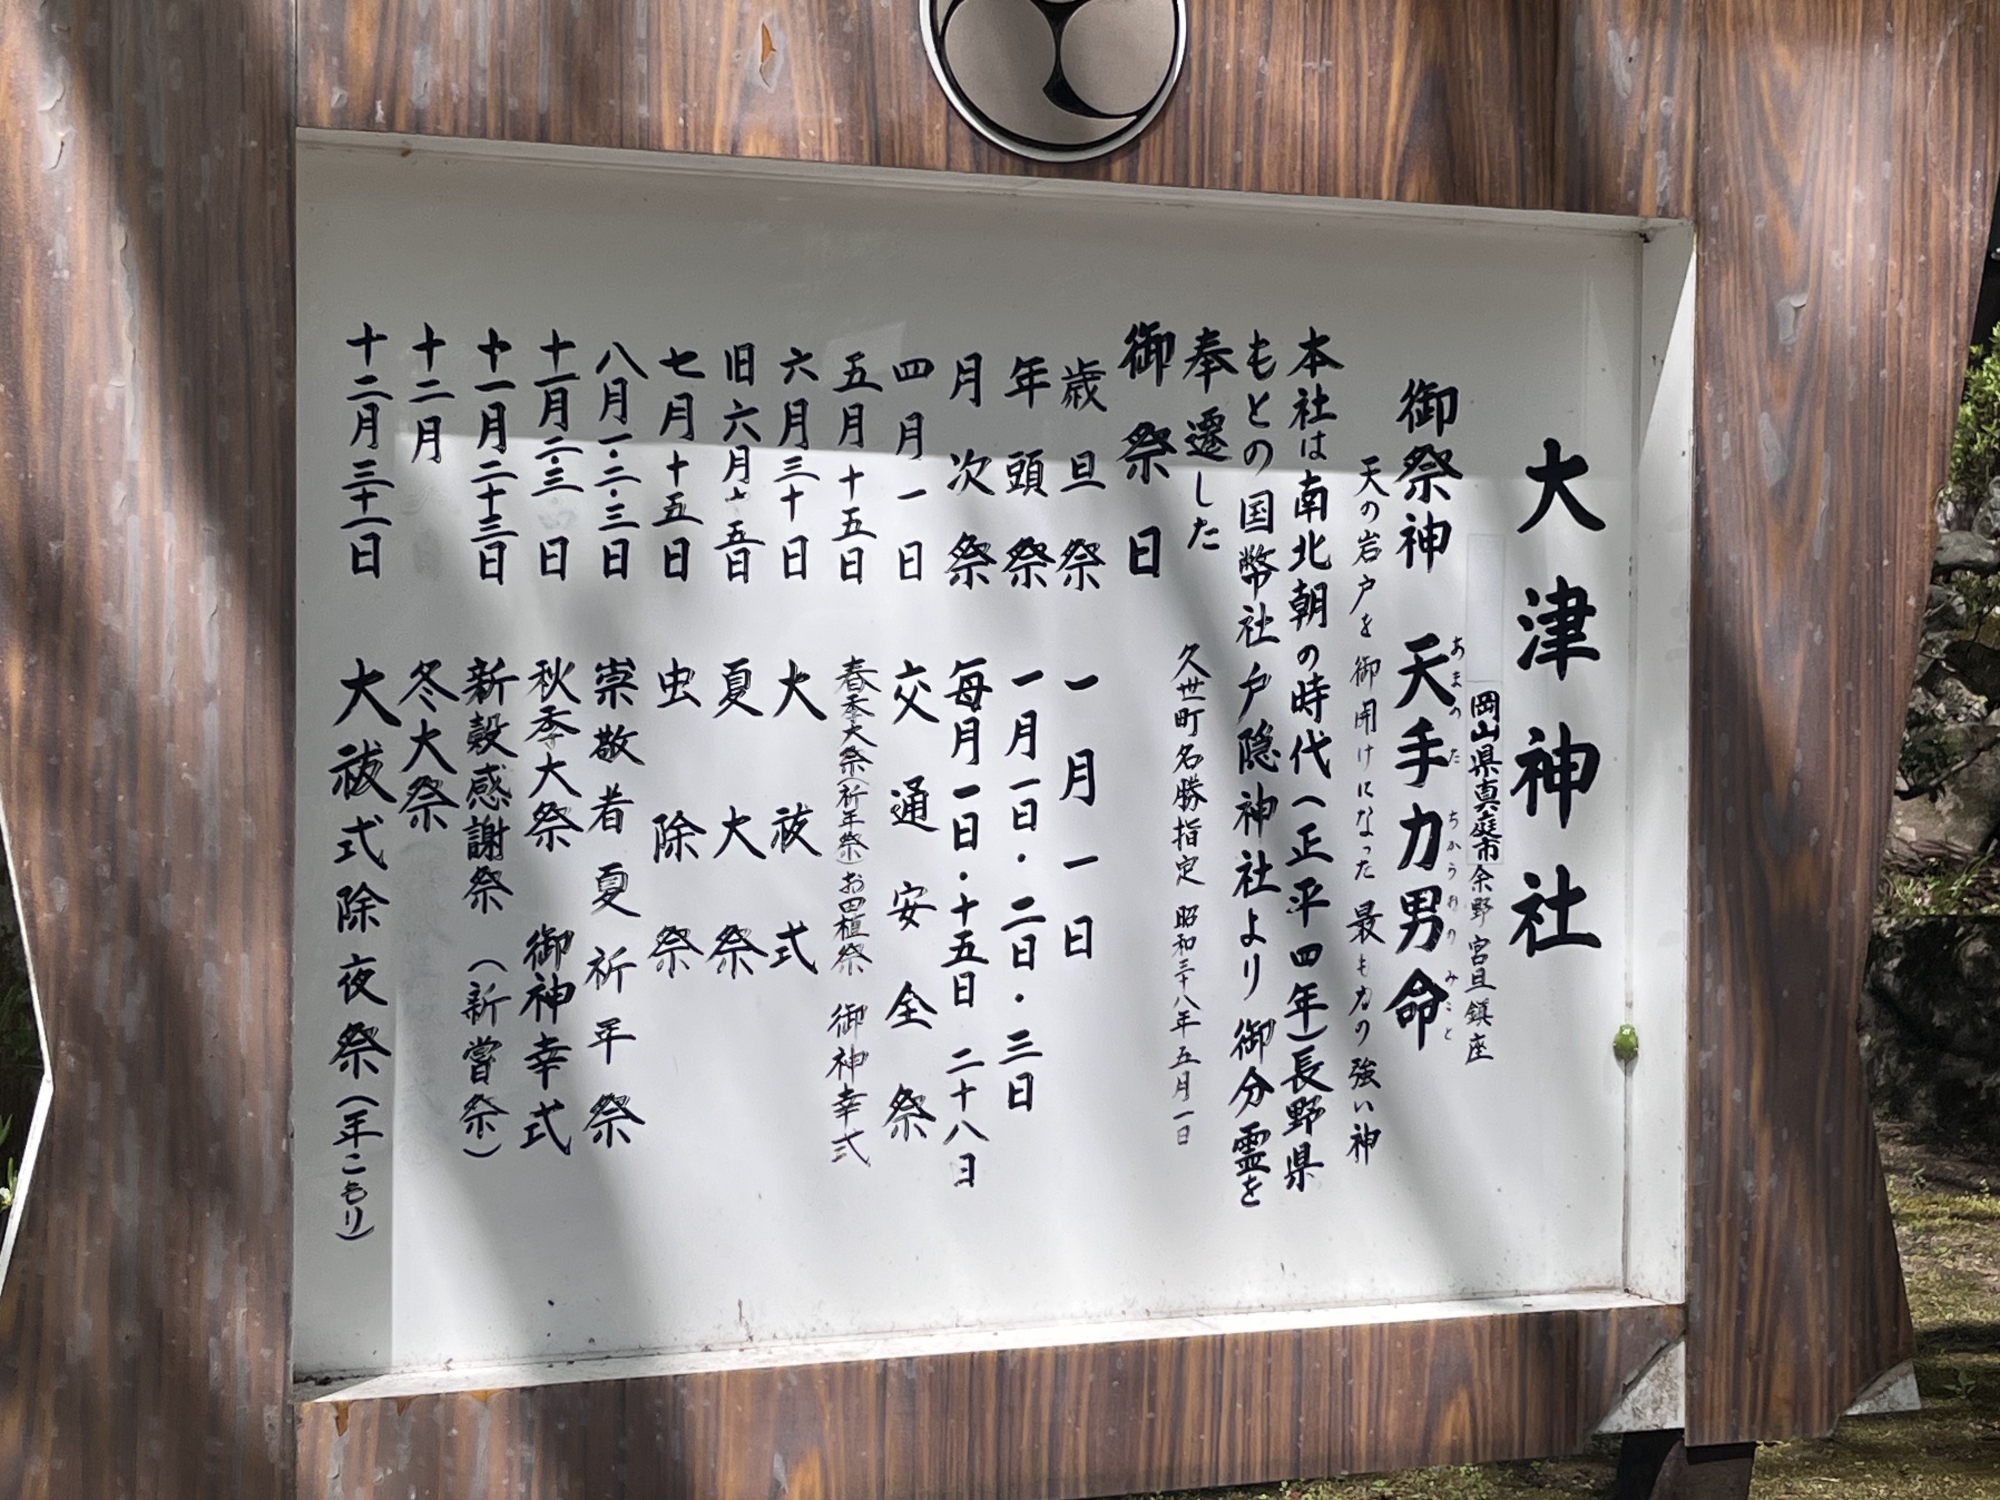 大津神社
岡山県真庭市余野 宮旦鎮座
御祭神 天手力男命
あまのた ちからおの みこと
天の岩戸を御開けになった最も力の強い神
本社は南北朝の時代(正平四年)長野県
もとの国幣社戸隠神社より御分霊を
奉遷した
久世町名勝指定 昭和三十八年五月一日
御祭日
歳旦祭 一月一日
年頭祭 一月一日・二日・三日
月次祭 毎月一日・十五日 二十八日
四月一日 交通安全祭
五月十五日 春季大祭(祈年祭)お田植祭 御神幸式
六月三十日 大祓式
旧六月十五日 夏大祭
七月十五日 虫除祭
八月一・二・三日 崇敬者夏祈年祭
十一月二・三日 秋季大祭 御神幸式
十一月二十三日 新穀感謝祭 (新嘗祭)
十二月 冬大祭
十二月三十一日 大祓式除夜祭(年こもり)